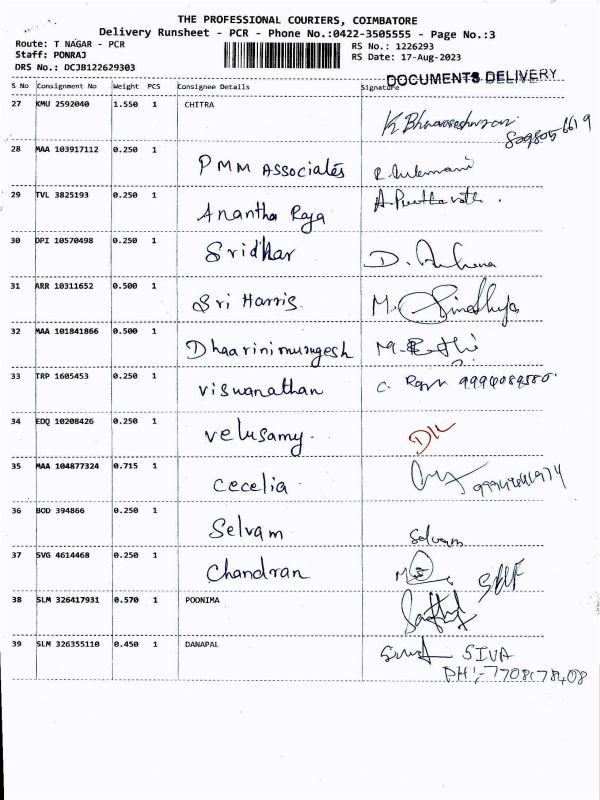 THE PROFESSIONAL COURIERS, COIMBATORE
Delivery Runsheet - PCR - Phone No.:0422-3505555 - Page No.:3
Route: T NAGAR - PCR
Staff: PONRAJ
DRS No.: DCJB122629303
RS No.: 1226293
RS Date: 17-Aug-2023
DOCUMENTS DELIVERY
S No Consignment No Weight PCS Consignee Details Signature
27 KMU 2592040 1.550 1 CHITRA
28 MAA 103917112 0.250 1 PMM Associates
29 TVL 3825193 0.250 1 Anantha Raja
30 DPI 10570498 0.250 1 Sridhar
31 ARR 10311652 0.500 1 Sri Harris M. Sindhuja
32 MAA 101841866 0.500 1 Dhaarinimurugesh
33 TRP 1605453 0.250 1 viswanathan
34 EDQ 10208426 0.250 1 velusamy.
35 MAA 104877324 0.715 1 cecelia
36 BOD 394866 0.250 1 Selvam Selvam
37 SVG 4614468 0.250 1 Chandran
38 SLM 326417931 0.570 1 POONIMA
39 SLM 326355110 0.450 1 DANAPAL SIVA